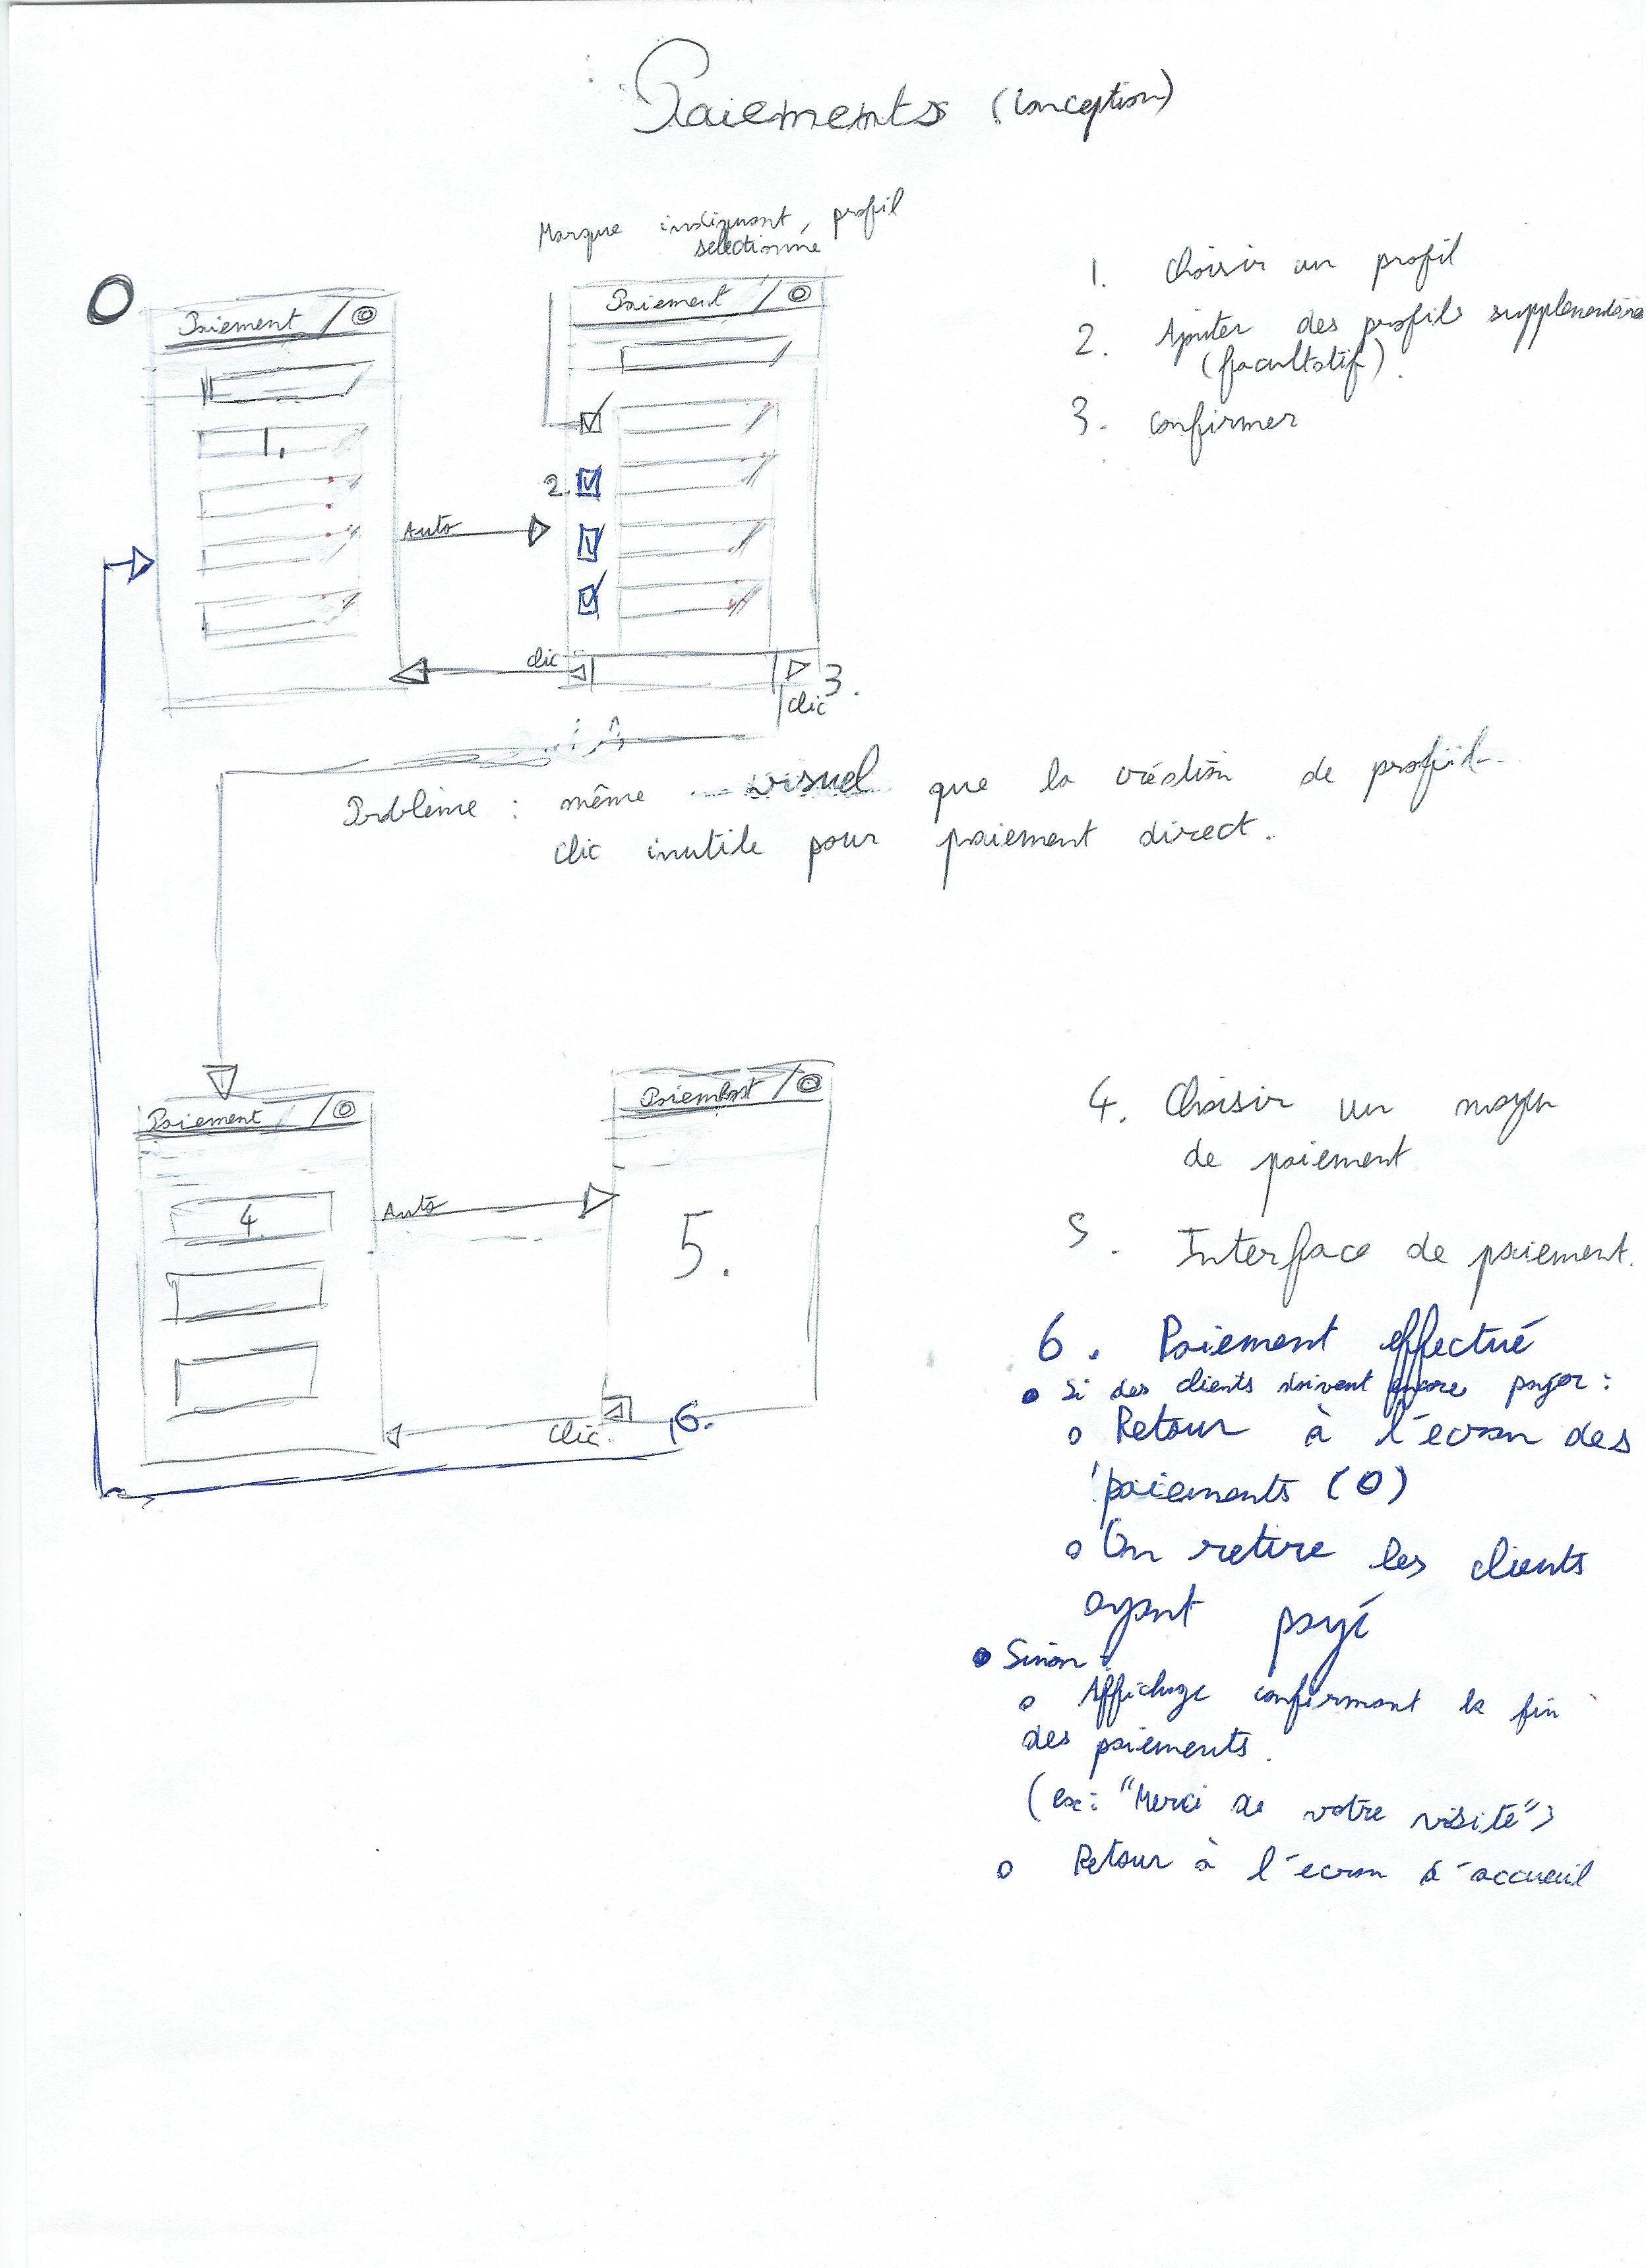 Paiements (conception)
Marque indiquant profil
sélectionné
O
Paiement
Paiement
1.
2.
Auto
clic
3.
clic
1. Choisir un profil
2. Ajouter des profils supplémentaires
(facultatif).
3. confirmer
Problème : même visuel que la création de profil.
clic inutile pour paiement direct.
Paiement
Paiement
4.
Auto
5.
Clic.
6.
4. Choisir un moyen
de paiement
5. Interface de paiement.
6. Paiement effectué
• Si des clients doivent encore payer :
o Retour à l'écran des
paiements (O)
o On retire les clients
ayant payé
• Sinon :
o Affichage confirmant la fin
des paiements.
(ex: "Merci de votre visite")
o Retour à l'écran d'accueil